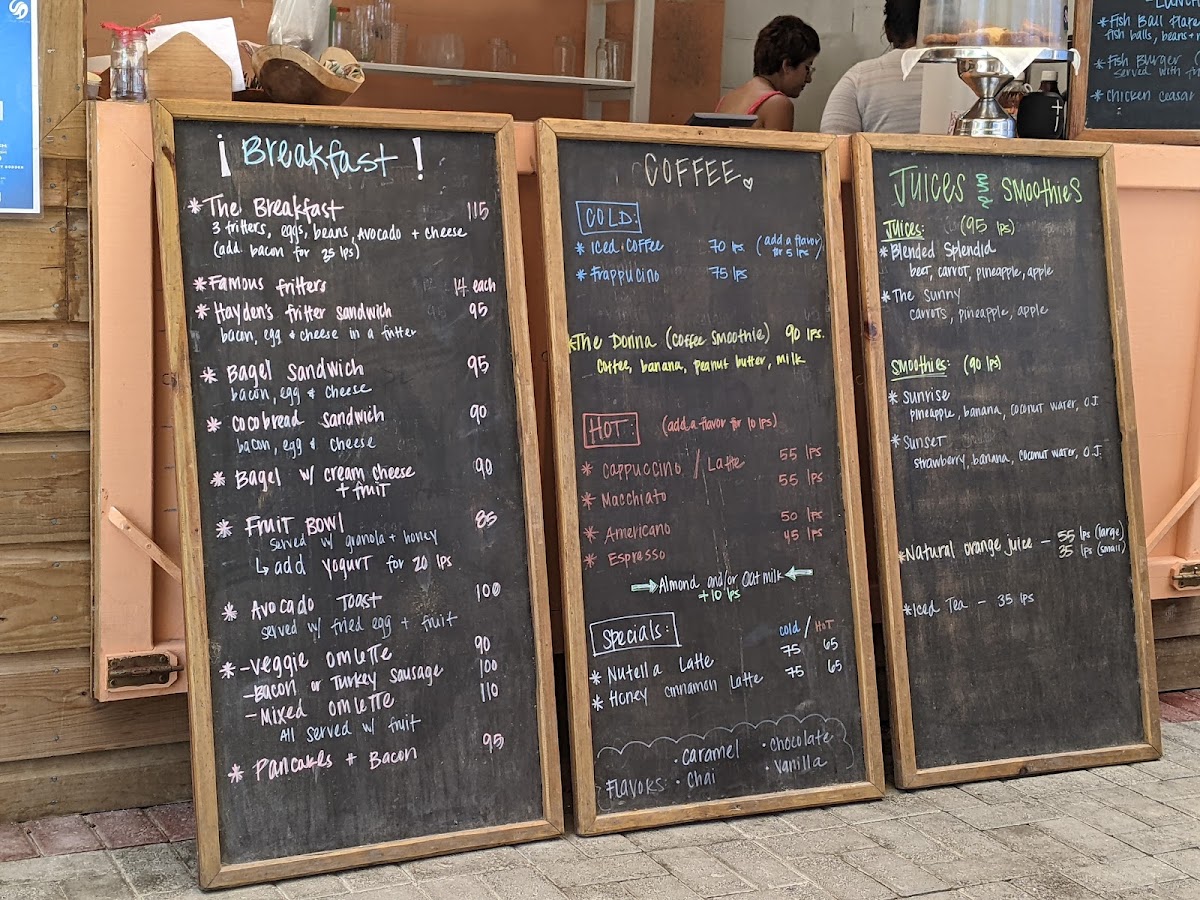 ¡ Breakfast !
* The Breakfast 115
3 fritters, eggs, beans, avocado + cheese
(add bacon for 35 lps)
* Famous fritters 14 each
* Hayden's fritter sandwich 95
bacon, egg & cheese in a fritter
* Bagel sandwich 95
bacon, egg & cheese
* cocobread sandwich 90
bacon, egg & cheese
* Bagel w/ cream cheese 90
+ fruit
* Fruit Bowl 85
served w/ granola + honey
↳ add yogurt for 20 lps
* Avocado Toast 100
served w/ fried egg + fruit
* - veggie omlette 90
- Bacon or Turkey sausage 100
- Mixed omlette 110
All served w/ fruit
* Pancakes + Bacon 95
COFFEE
COLD:
* Iced coffee 70 lps (add a flavor
for 5 lps)
* Frappucino 75 lps
* The Donna (coffee smoothie) 90 lps.
coffee, banana, peanut butter, milk
HOT: (add a flavor for 10 lps)
* cappuccino / Latte 55 lps
* Macchiato 55 lps
* Americano 50 lps
* Espresso 45 lps
→ Almond and/or Oat milk ←
+10 lps
Specials: cold / HOT
* Nutella Latte 75 65
* Honey cnnamon Latte 75 65
• caramel • chocolate
Flavors: • chai • vanilla
Juices and Smoothies
Juices: (95 lps)
* Blended Splendid
beet, carrot, pineapple, apple
* The Sunny
carrots, pineapple, apple
Smoothies: (90 lps)
* sunrise
pineapple, banana, coconut water, O.J.
* sunset
strawberry, banana, coconut water, O.J.
* Natural orange juice - 55 lps (large)
35 lps (small)
* Iced Tea - 35 lps
-Lunch
* Fish Ball
fish balls, beans +
* Fish Burger
served with
* chicken ceasar